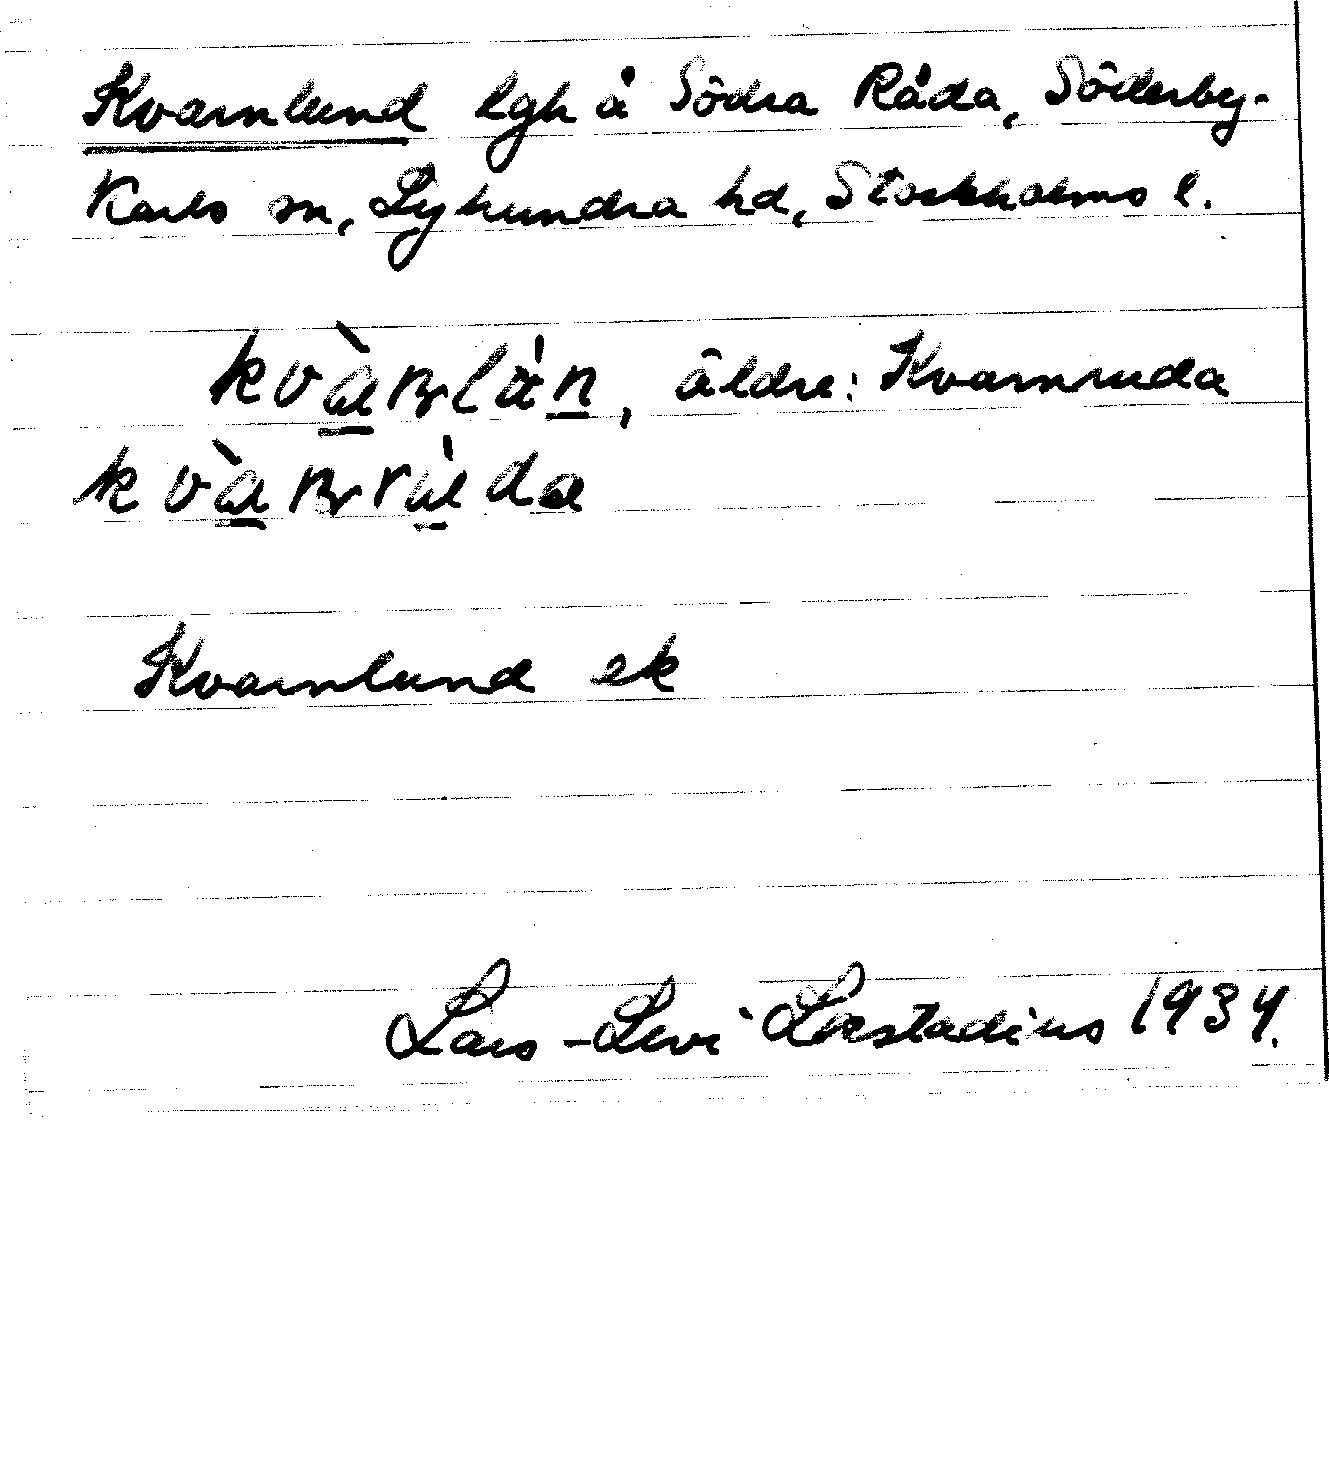 Kvarnlund lgh å Södra Råda, Söderby-
Karls sn, Lyhundra hd, Stockholms l.
äldre: Kvarnruda
Kvarnlund ek
Lars-Levi Læstadius 1934.